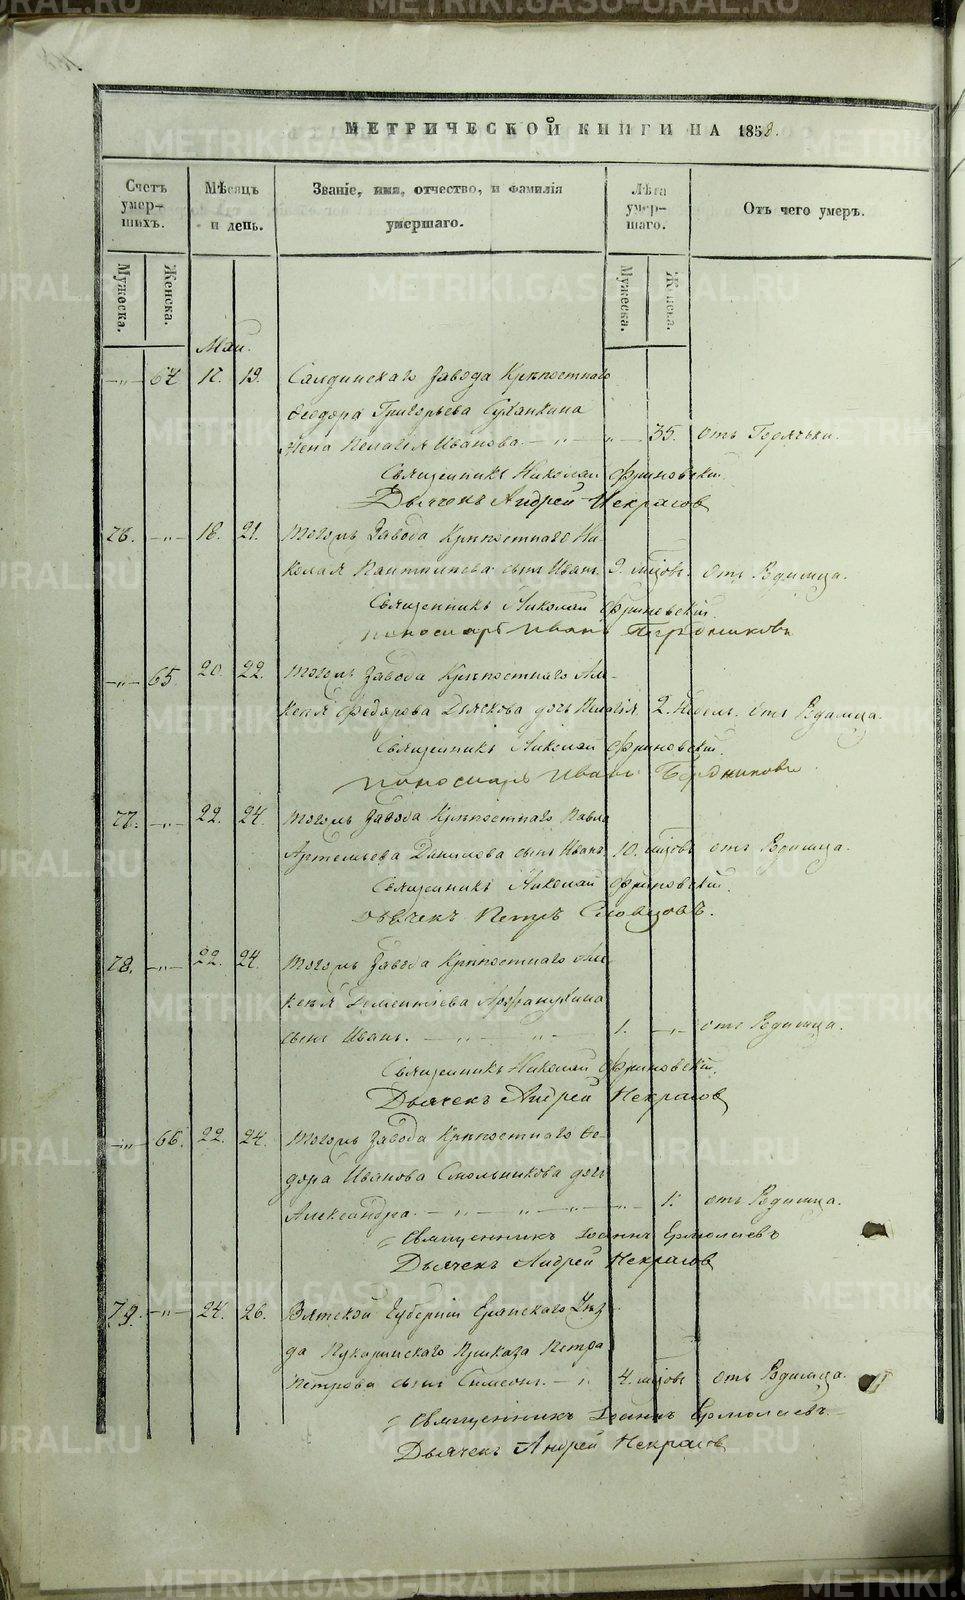 METRIKI.GASO-URAL.RU
МЕТРИЧЕСКОЙ КНИГИ НА 1858.
Счетъ умер-шихъ.
Мѣсяцъ и день.
Званіе, имя, отчество, и фамилія умершаго.
Лѣта умер-шаго.
Отъ чего умеръ.
Мужеска. Женска. Мужеска. Женска.
Маи.
—„— 64 17. 19. Салдинскаго Завода Крѣпостнаго
Феодора Григорьева
Жена Пелагея Иванова. —„— 35. отъ Горячки.
Священникъ Николай Фриновскій
Дьячекъ Андрей Некрасов
76. —„— 18. 21. Тогожъ Завода Крѣпостнаго Ни-
колая сынъ Иванъ. 9. мцовъ. отъ Родимца.
Священникъ Николай Фриновскій
Пономарь Иванъ Бердниковъ
—„— 65. 20. 22. Тогожъ Завода Крѣпостнаго Але-
ксѣя Федорова Дьячкова дочь Пелагія. 2. Недѣль. отъ Родимца.
Священникъ Николай Фриновскій.
Пономарь Иванъ Бердниковъ.
77. —„— 22. 24. Тогожъ Завода Крѣпостнаго Павла
Артемьева Данилова сынъ Иванъ. 10. мцовъ отъ Родимца.
Священникъ Николай Фриновскій.
Дьячекъ Петръ Словцовъ.
78. —„— 22. 24. Тогожъ Завода Крѣпостнаго Але-
ксѣя Дементіева
сынъ Иванъ. —„— 1. —„— отъ Родимца.
Священникъ Николай Фриновскій.
Дьячекъ Андрей Некрасов
—„— 66. 22. 24. Тогожъ Завода Крѣпостнаго Фе-
дора Иванова Смольникова дочь
Александра. —„— 1. отъ Родимца.
Священникъ Іоаннъ Ермолаевъ
Дьячекъ Андрей Некрасов
79. —„— 24. 26. Вятской Губерніи Яранскаго Уѣз-
да Приказа Петра
Петрова сынъ Симеонъ. —„ 4. мцовъ отъ Родимца.
Священникъ Іоаннъ Ермолаевъ.
Дьячекъ Андрей Некрасов